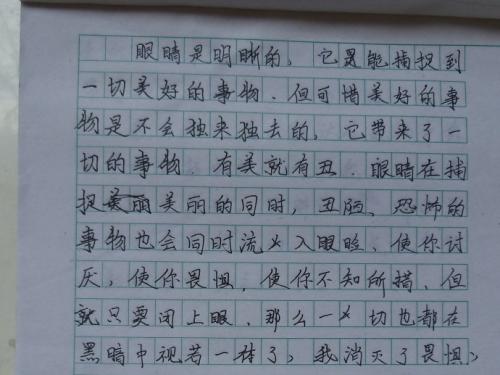 眼睛是明晰的，它是能捕捉到
一切美好的事物．但可惜美好的事
物是不会独来独去的，它带来了一
切的事物．有美就有丑．眼睛在捕
捉美丽的同时，丑陋、恐怖的
事物也会同时流入眼睑、使你讨
厌，使你畏惧，使你不知所措．但
就只要闭上眼．那么一切也都在
黑暗中视若一体了，我消灭了畏惧，